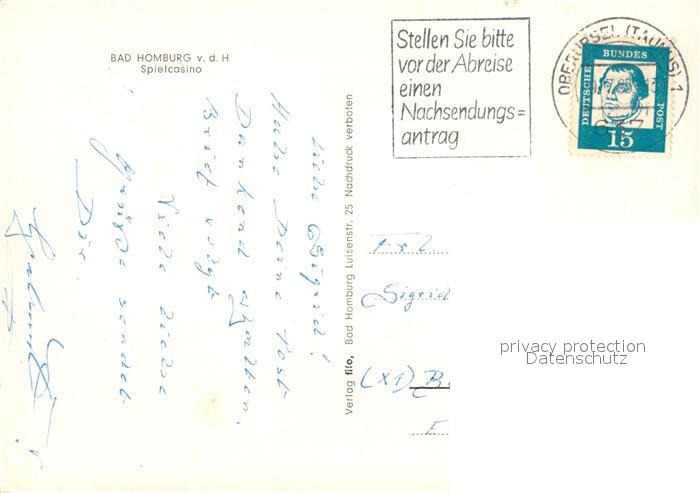 BAD HOMBURG v. d. H
Spielcasino
Stellen Sie bitte
vor der Abreise
einen
Nachsendungs=
antrag
OBERURSEL (TAUNUS) 1
DEUTSCHE BUNDES POST
15
Liebe Sigrid!
Habe Deine Post
Dankend erhalten.
Brief folgt
Viele liebe
Grüsse sendet
Dir
Verlag fifo, Bad Homburg Luisenstr. 25 Nachdruck verboten
Frl.
Sigrid
(X1) B
privacy protection
Datenschutz